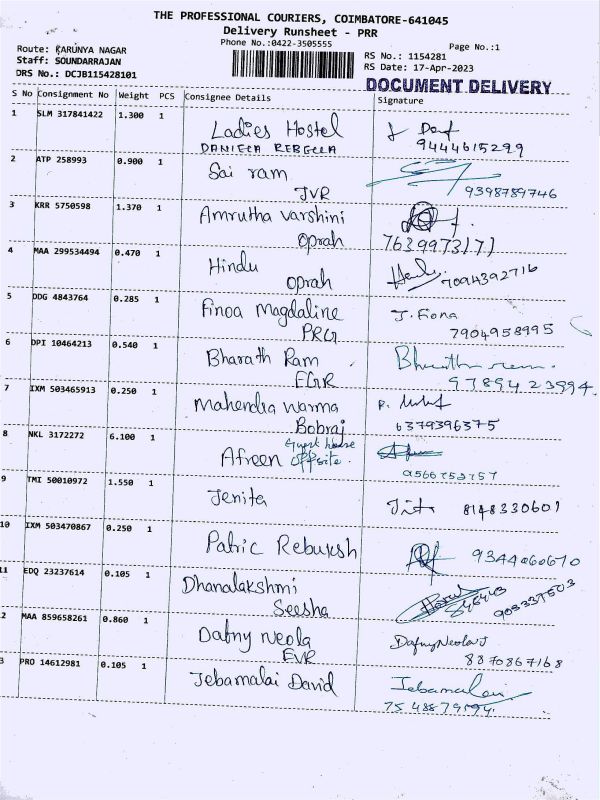 THE PROFESSIONAL COURIERS, COIMBATORE-641045
Delivery Runsheet - PRR
Phone No.:0422-3505555 Page No.:1
Route: KARUNYA NAGAR RS No.: 1154281
Staff: SOUNDARRAJAN RS Date: 17-Apr-2023
DRS No.: DCJB115428101 DOCUMENT DELIVERY
S No Consignment No Weight PCS Consignee Details Signature
1 SLM 317841422 1.300 1 Ladies Hostel
DANIELA REBECCA 9444615299
2 ATP 258993 0.900 1 Sai ram
JVR 9398789746
3 KRR 5750598 1.370 1 Amrutha varshini
Oprah
4 MAA 299534494 0.470 1 Hindu
Oprah 7094392716
5 DDG 4843764 0.285 1 Finoa Magdaline J. Fiona
PRG 7904958995
6 DPI 10464213 0.540 1 Bharath Ram
FGR 9789423994.
7 IXM 503465913 0.250 1 Mahendra Warma
Bobraj 6379396375
8 NKL 3172272 6.100 1 Guest house
Afreen Opposite.
9 TMI 50010972 1.550 1 Jenita 8148330601
10 IXM 503470867 0.250 1 Patric Rebuksh 9344060670
11 EDQ 23237614 0.105 1 Dhanalakshmi
Seesha
2 MAA 859658261 0.860 1 Dafny Neola DafnyNeola J
EVR 8870867168
3 PRO 14612981 0.105 1 Jebamalai David Jebamalai